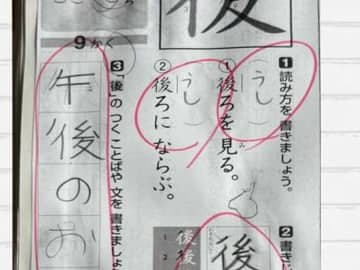 後
1 読み方を 書きましょう。
① 後ろを 見る。
(うし)
② 後ろに ならぶ。
(うし)
2 書き
後
後後
1 2
9かく
3 「後」の つくことばや 文を 書きましょ
午後のお